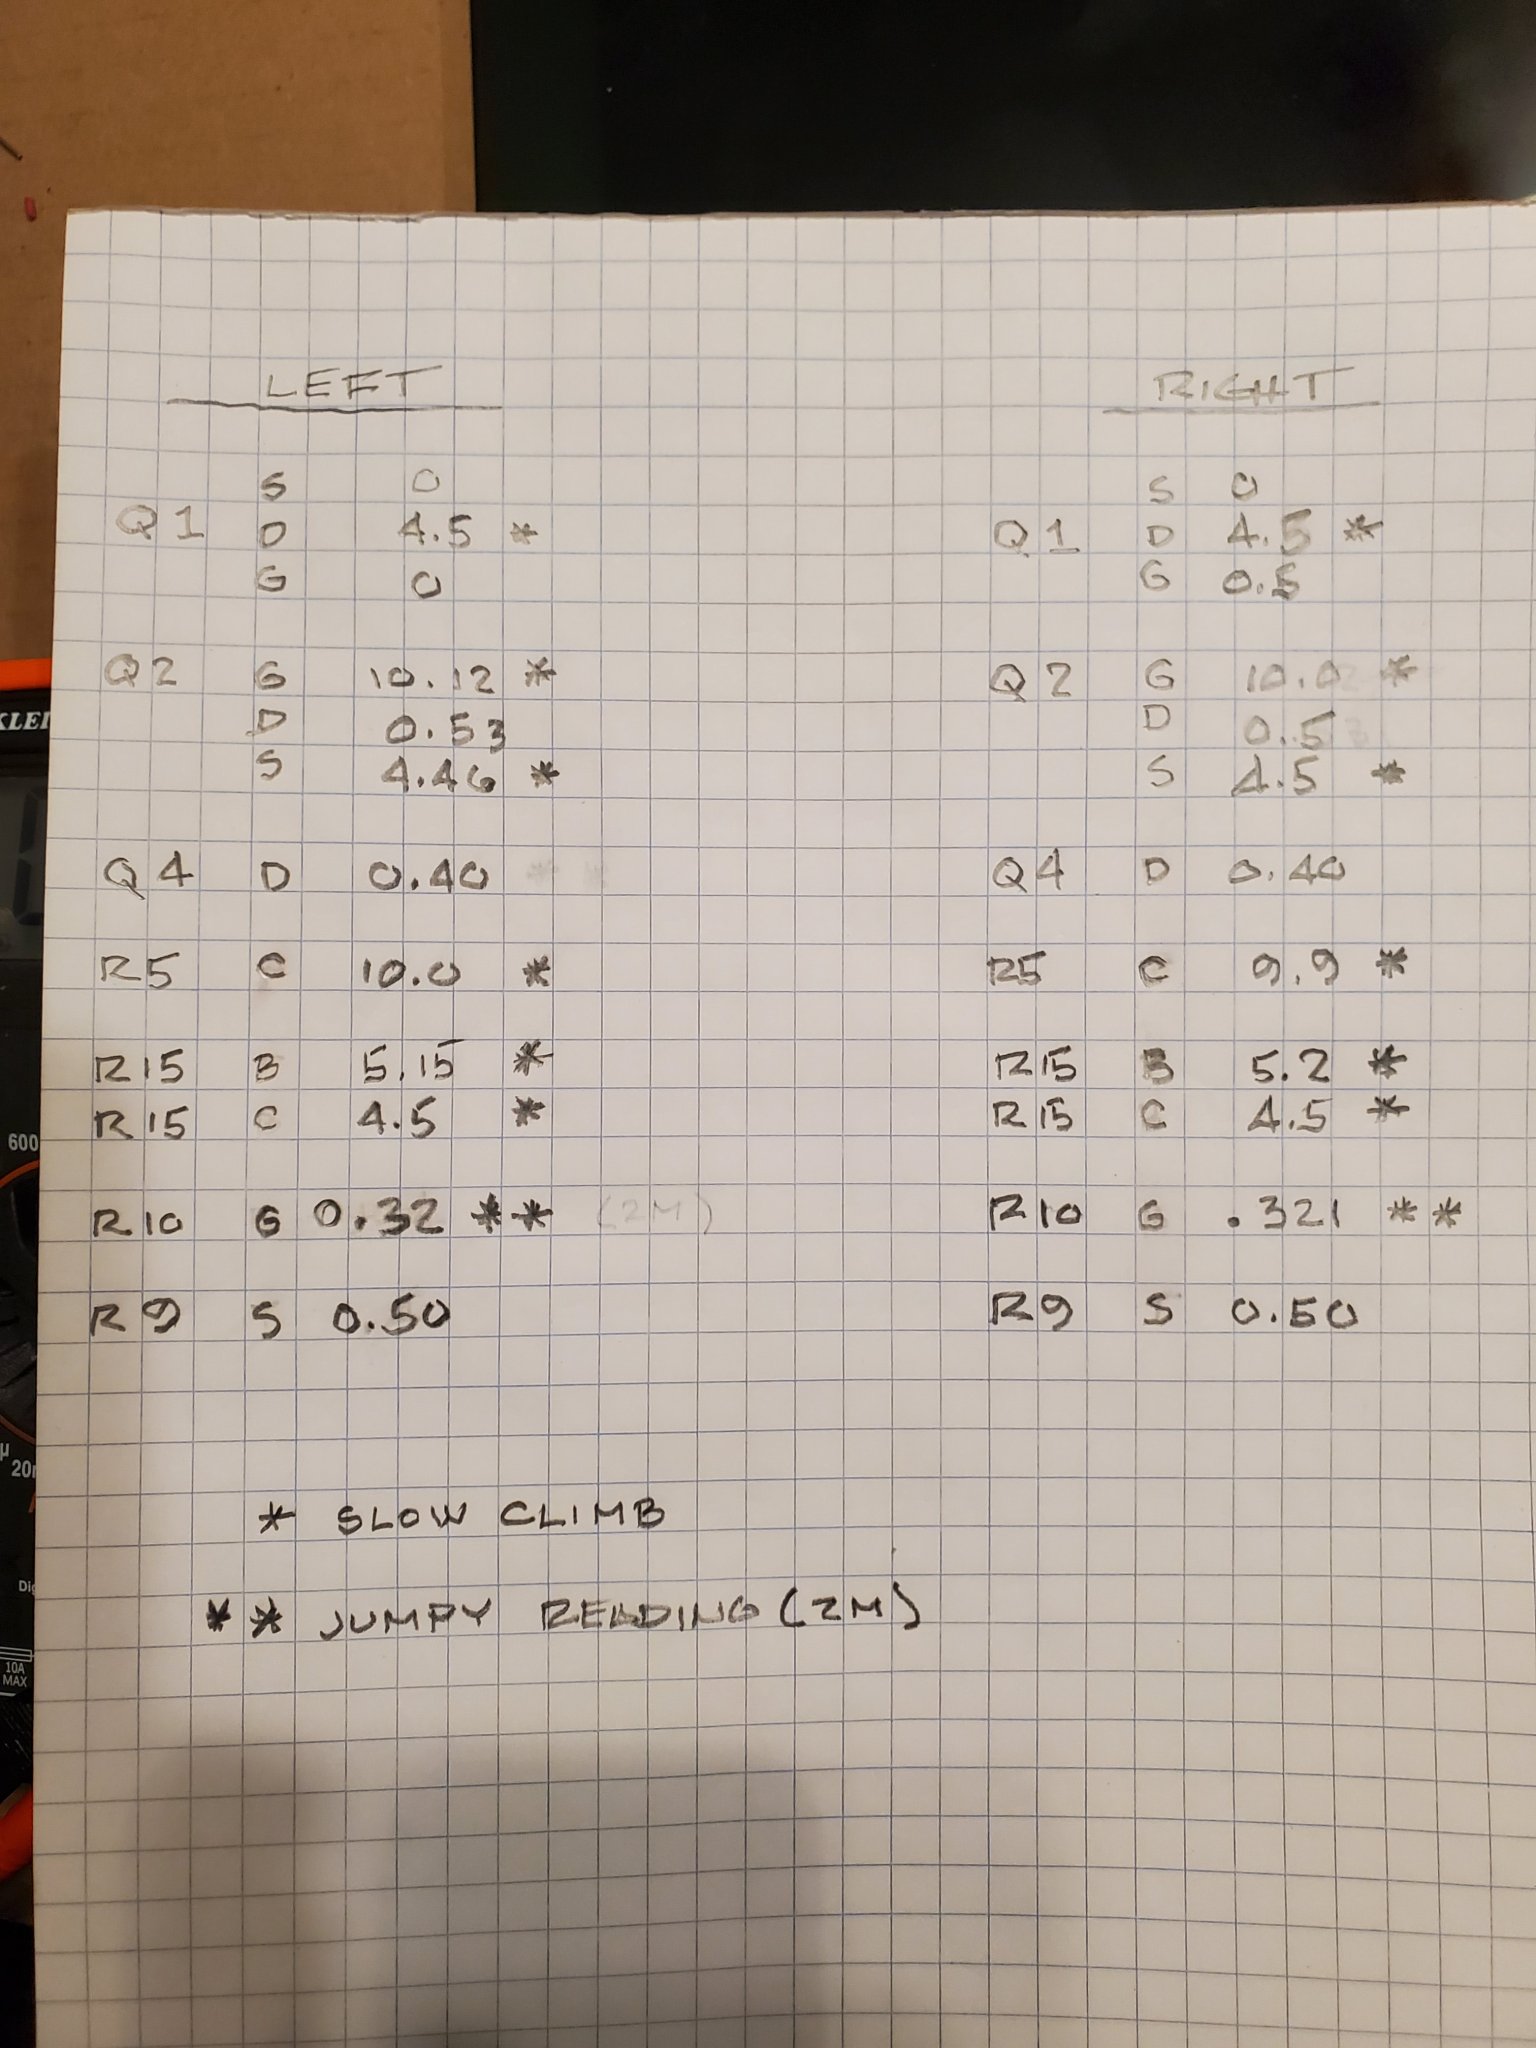 LEFT RIGHT
S 0 S 0
Q1 D 4.5 * Q1 D 4.5 *
G 0 G 0.5
Q2 G 10.12 * Q2 G 10.0 *
D 0.53 D 0.5
S 4.46 * S 4.5 *
Q4 D 0.40 Q4 D 0.40
R5 C 10.0 * R5 C 9.9 *
R15 B 5.15 * R15 B 5.2 *
R15 C 4.5 * R15 C 4.5 *
R10 G 0.32 ** (2M) R10 G .321 **
R9 S 0.50 R9 S 0.50
* SLOW CLIMB
** JUMPY READING (2M)
600
20
10A
MAX